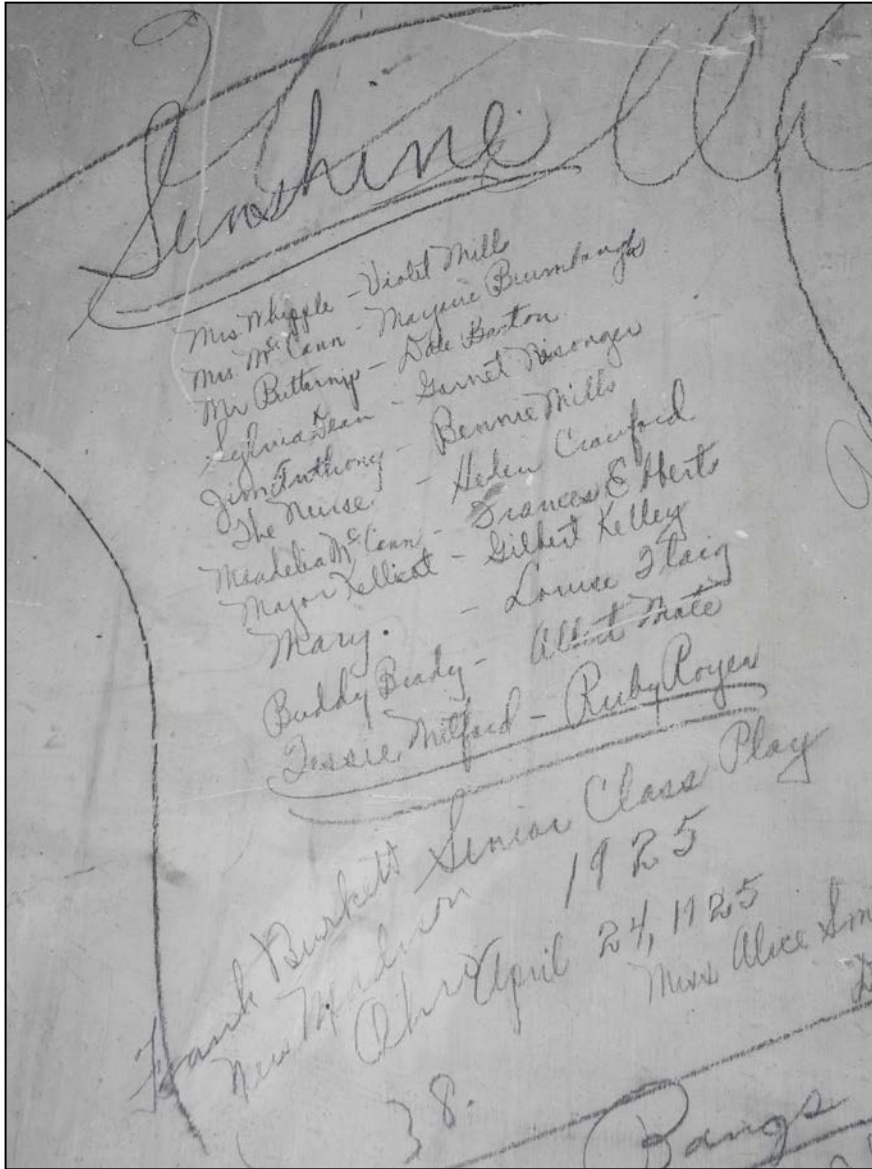 Sunshine
Mrs Whipple - Violet Mills
Mrs. McCann - Marjorie Brumbaugh
Mr Butternip - Dale Barton
Sylvia Dean - Garnet Nisonger
Jim Anthony - Bennie Mills
The Nurse - Helen Crawford
Meadelia McCann - Frances Ebbert
Major Kellicot - Gilbert Kelley
Mary. - Louise Flaig
Buddy Brady - Albert
Tessie Milford - Ruby Royer
Senior Class Play
1925
April 24, 1925
Miss Alice
Frank Burkett
New Madison
Ohio
38.
Bangs